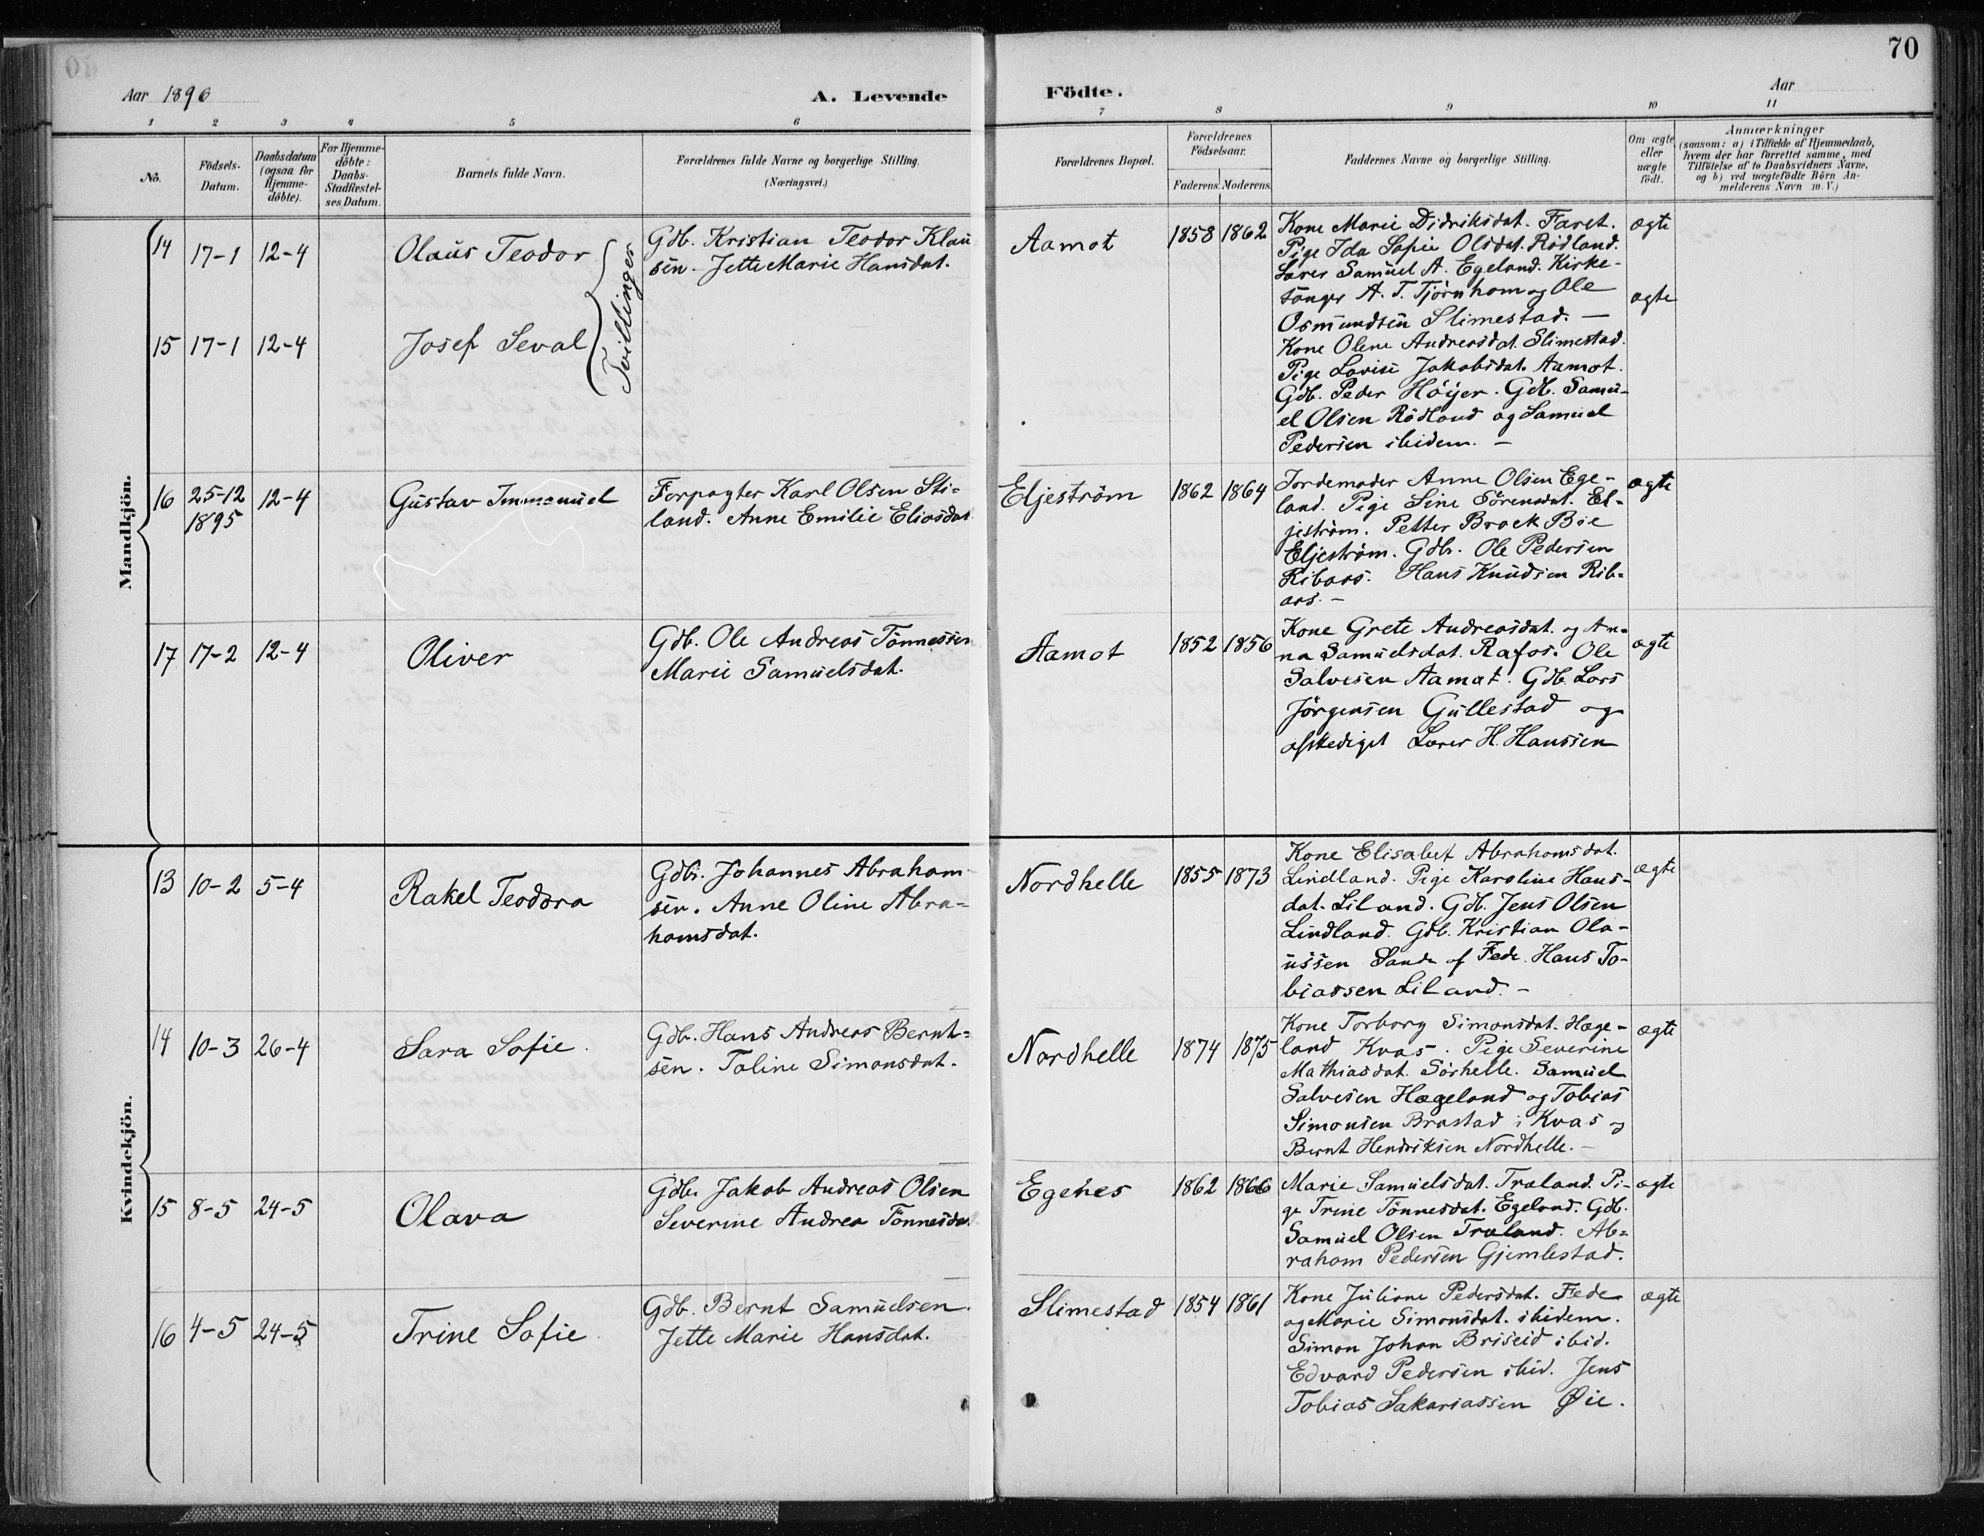 70
Aar 1896
A. Levende
Födte.
Aar
1 2 3 4 5 6 7 8 9 10 11
No.
Födsels-
Datum.
Daabsdatum
(ogsaa for
Hjemme-
döbte).
For Hjemme-
döbte:
Daabs-
Stadfæstel-
ses Datum.
Barnets fulde Navn.
Forældrenes fulde Navne og borgerlige Stilling.
(Næringsvei.)
Forældrenes Bopæl.
Forældrenes
Födselsaar.
Faderens. Moderens.
Faddernes Navne og borgerlige Stilling.
Om ægte
eller
uægte
födt.
Anmærkninger
(saasom: a) i Tilfælde af Hjemmedaab,
hvem der har forrettet samme, med
Tilföielse af to Daabsvidners Navne,
og b) ved uægtefödte Börn An-
melderens Navn m. V.)
Mandkjön.
14 17-1 12-4 Olaus Teodor
15 17-1 12-4 Josef Seval
Tvillinger
Gdb. Kristian Teodor Klau
sen. Jette Marie Hansdat.
Aamot 1858 1862
Kone Marie Didriksdat. Faret.
Pige Ida Sofie Olsdat. Rødland.
Lærer Samuel A. Egeland. Kirke-
sanger A. T. Tjørnhom og Ole
Osmundsen Slimestad. —
Kone Olene Andreasdat. Slimestad.
Pige Lovise Jakobsdat. Aamot.
Gdb. Peder Höyer. Gdb. Samu-
el Olsen Rödland og Samuel
Pedersen ibidem. —
ægte
ægte
16 25-12
1895 12-4 Gustav Immanuel
Forpagter Karl Olsen Sti-
land. Anne Emilie Eliasdat
Eljeström 1862 1864
Jordemoder Anne Olsen Ege-
land. Pige Sine Sörensdat. El-
jeström. Petter Brock Bie
Eljeström. Gdbr. Ole Pedersen
Ribaas. Hans Knudsen Rib-
aas. —
ægte
17 17-2 12-4 Oliver
Gdb. Ole Andreas Tönnessen
Marie Samuelsdat.
Aamot 1852 1856
Kone Grete Andreasdat. og An-
na Samuelsdat. Rafos. Ole
Salvesen Aamot. Gdb. Lars
Jörgensen Gullestad og
afskediget Lærer H. Hanssen
ægte
Kvindekjön.
13 10-2 5-4 Rakel Teodora
Gdbr. Johannes Abraham-
sen. Anne Oline Abra-
hamsdat.
Nordhelle 1855 1873
Kone Elisabet Abrahamsdat.
Lindland. Pige Karoline Hans-
dat. Liland. Gdb. Jens Olsen
Lindland. Gdb. Kristian Ola-
ussen Sande af Fede. Hans To-
biassen Liland. —
ægte
14 10-3 26-4 Sara Sofie.
Gdb. Hans Andreas Bernt-
sen. Taline Simonsdat.
Nordhelle 1874 1875
Kone Torborg Simonsdat. Hæge-
land Kvas. Pige Severine
Mathiasdat. Sörhelle. Samuel
Salvesen Hægeland og Tobias
Simonsen Brastad i Kvas og
Bernt Hendriksen Nordhelle. —
ægte
15 8-5 24-5 Olava
Gdb. Jakob Andreas Olsen
Severine Andrea Tönnesdat
Egenes 1862 1866
Marie Samuelsdat. Træland. Pi-
ge Trine Tönnesdat. Egeland. Gdb.
Samuel Olsen Træland. Ab-
raham Pedersen Gjemlestad.
ægte
16 4-5 24-5 Trine Sofie.
Gdb. Bernt Samuelsen.
Jette Marie Hansdat.
Slimestad 1854 1861
Kone Juliane Pedersdat. Fede
og Marie Simonsdat. ibidem.
Simon Johan Briseid ibid.
Edvard Pedersen ibid. Jens
Tobias Sakariassen Øie.
ægte